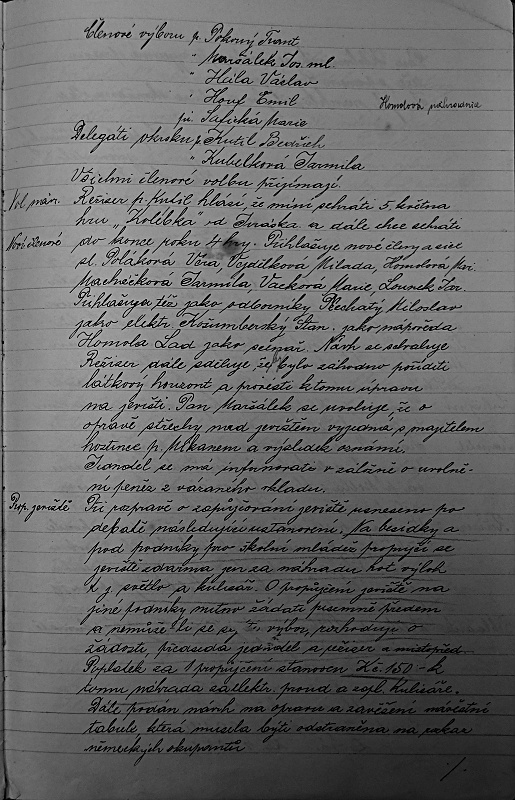 Členové výboru p. Pokorný Frant.
" Maršálek Jos. ml.
" Hůla Václav
" Houf Emil
Homolová náhradnice
pí. Safická Marie
Delegáti okrsku p. Kutil Bedřich
" Kubelková Jarmila
Všichni členové volbu přijímají.
Vol. nán.
Režiser p. Kutil hlásí, že míní sehráti 5. května
hru "Kolébka" od Jiráska a dále chce sehráti
Noví členové
do konce roku 4 hry. Přihlašuje nové členy a sice
sl. Poláková Věra, Vojdilková Milada, Homolová Mar.
Macháčková Jarmila, Vacková Marie, Lounek Jar.
Přihlašuje též jako odborníky Plechatý Miloslav
jako elektr. Kožumberský Stan. jako nápověda
Homola Lad. jako scenář. Návrh se schvaluje
Režiser dále sděluje, že by bylo záhodno poříditi
látkový horizont a provésti k tomu úpravu
na jevišti. Pan Maršálek se uvoluje, že o
opravě střechy nad jevištěm vyjedná s majitelem
hostince p. Mikanem a výsledek oznámí.
Jednatel se má informovati v záložně o uvolně-
ní peněz z vázaného vkladu.
Prop. jeviště
Při rozpravě o zapůjčování jeviště usneseno po
debatě následující ustanovení. Na besídky a
pod. podniky pro školní mládež propůjčí se
jeviště zdarma jen za náhradu hot. výloh
t. j. světlo a kulisář. O propůjčení jeviště na
jiné podniky nutno žádati písemně předem
a nemůže-li se sejíti výbor, rozhodují o
žádosti předseda jednatel a režiser a místopřed.
Poplatek za 1 propůjčení stanoven Kč. 150.- k
tomu náhrada za elektr. proud a event. kulisáře.
Dále podán návrh na opravu a zavěšení návěstní
tabule, která musela býti odstraněna na zákaz
německých okupantů
./.